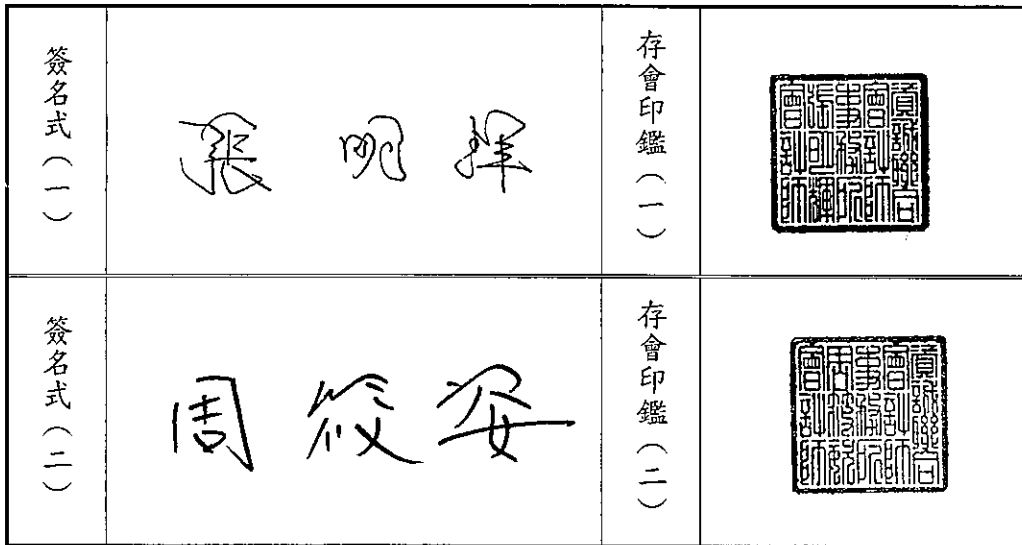 簽名式(一)
張明輝
存會印鑑(一)
資誠聯合
會計師
事務所
張明輝
會計師
簽名式(二)
周筱姿
存會印鑑(二)
資誠聯合
會計師
事務所
周筱姿
會計師